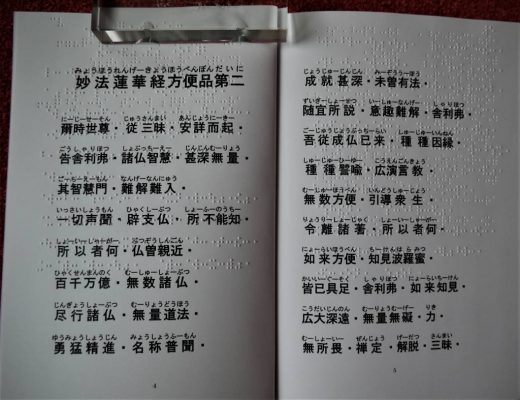 みょうほうれんげーきょうほうべんぽんだいに
妙法蓮華経方便品第二
にーじーせーそん じゅうさんまい あんじょうにーきー
爾時世尊・従三昧・安詳而起・
ごうしゃりほつ しょぶっちーえー じんじんむーりょう
告舎利弗・諸仏智慧・甚深無量・
ごーちーえーもん なんげーなんにゅう
其智慧門・難解難入・
いっさいしょうもん ひゃくしーぶつ しょーふーのうちー
一切声聞・辟支仏・所不能知・
しょーいーしゃーがー ぶつぞうしんごん
所以者何・仏曽親近・
ひゃくせんまんのく むーしゅーしょーぶつ
百千万億・無数諸仏・
じんぎょうしょーぶつ むーりょうどうほう
尽行諸仏・無量道法・
ゆうみょうしょうじん みょうしょうふーもん
勇猛精進・名称普聞・
4
じょうじゅーじんじん みーぞううーほう
成就甚深・未曽有法・
ずいぎーしょーせつ いーしゅーなんげー しゃりほつ
随宜所説・意趣難解・舎利弗・
ごーじゅうじょうぶっちーらい しゅーじゅーいんねん
吾従成仏已来・種種因縁・
しゅーじゅーひーゆー こうえんごんきょう
種種譬喩・広演言教・
むーしゅーほうべん いんどうしゅーじょう
無数方便・引導衆生・
りょうりーしょーじゃく しょーいーしゃーがー
令離諸著・所以者何・
にょーらいほうべん ちーけんはらみつ
如来方便・知見波羅蜜・
かいいーぐーそく しゃりほつ にょーらいちーけん
皆已具足・舎利弗・如来知見・
こうだいじんのん むーりょうむーげー りき
広大深遠・無量無礙・力・
むーしょーいー ぜんじょう げーだつ さんまい
無所畏・禅定・解脱・三昧・
5